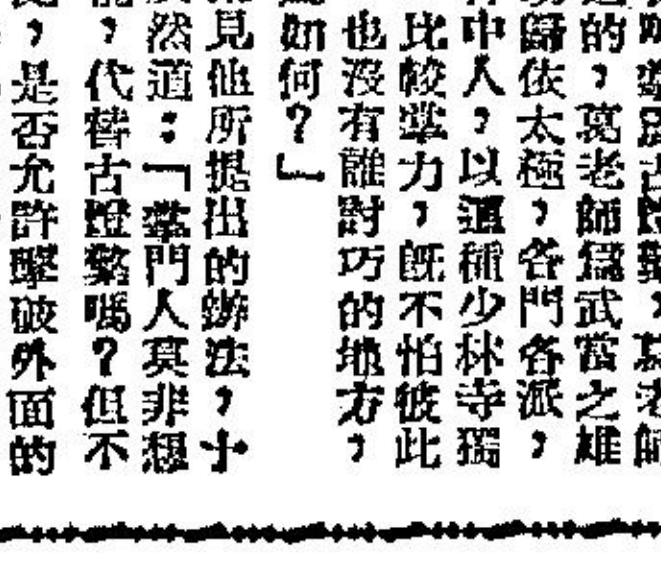 師
的，葛老師為武當之雄
歸依太極，各門各派，
中人，以這種少林寺獨
比較掌力，既不怕彼此
也沒有誰討巧的地方，
如何？」
見他所提出的辦法，十
然道：「掌門人莫非想
，代替古燈檠嗎？但不
，是否允許擊破外面的